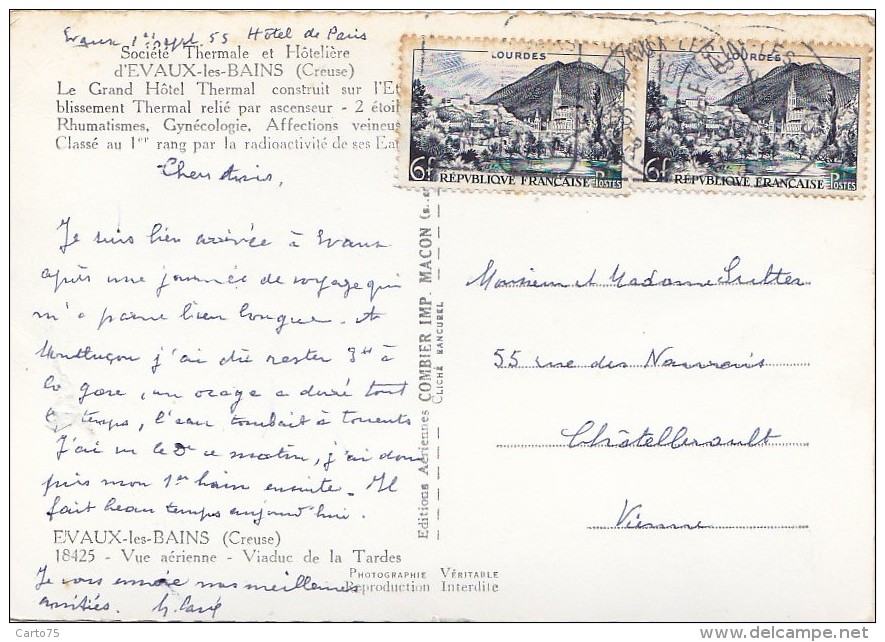 Evaux 1er sept. 55 Hôtel de Paris
Société Thermale et Hôtelière
d'EVAUX-les-BAINS (Creuse)
Le Grand Hôtel Thermal construit sur l'Et
blissement Thermal relié par ascenseur - 2 étoil
Rhumatismes, Gynécologie, Affections veineus
Classé au 1er rang par la radioactivité de ses Eau
Chers Amis,
Je suis bien arrivée à Evaux
après une journée de voyage qui
m'a parue bien longue. A
Montluçon j'ai dû rester 3h à
la gare, un orage a duré tout
le temps, l'eau tombait à torrents
J'ai vu le Dr ce matin, j'ai donc
pris mon 1er bain ensuite. Il
fait beau temps aujourd'hui.
EVAUX-les-BAINS (Creuse)
18425 - Vue aérienne - Viaduc de la Tardes
Je vous envoie mes meilleures
amitiés.
PHOTOGRAPHIE VÉRITABLE
Reproduction Interdite
Editions Aériennes COMBIER IMP. MACON (S.
CLICHÉ RANCUREL
LOURDES
6F RÉPVBLIQUE FRANÇAISE POSTES
LOURDES
6F RÉPVBLIQUE FRANÇAISE POSTES
Monsieur et Madame
55 rue des
Châtellerault
Vienne
Carto75
www.delcampe.net